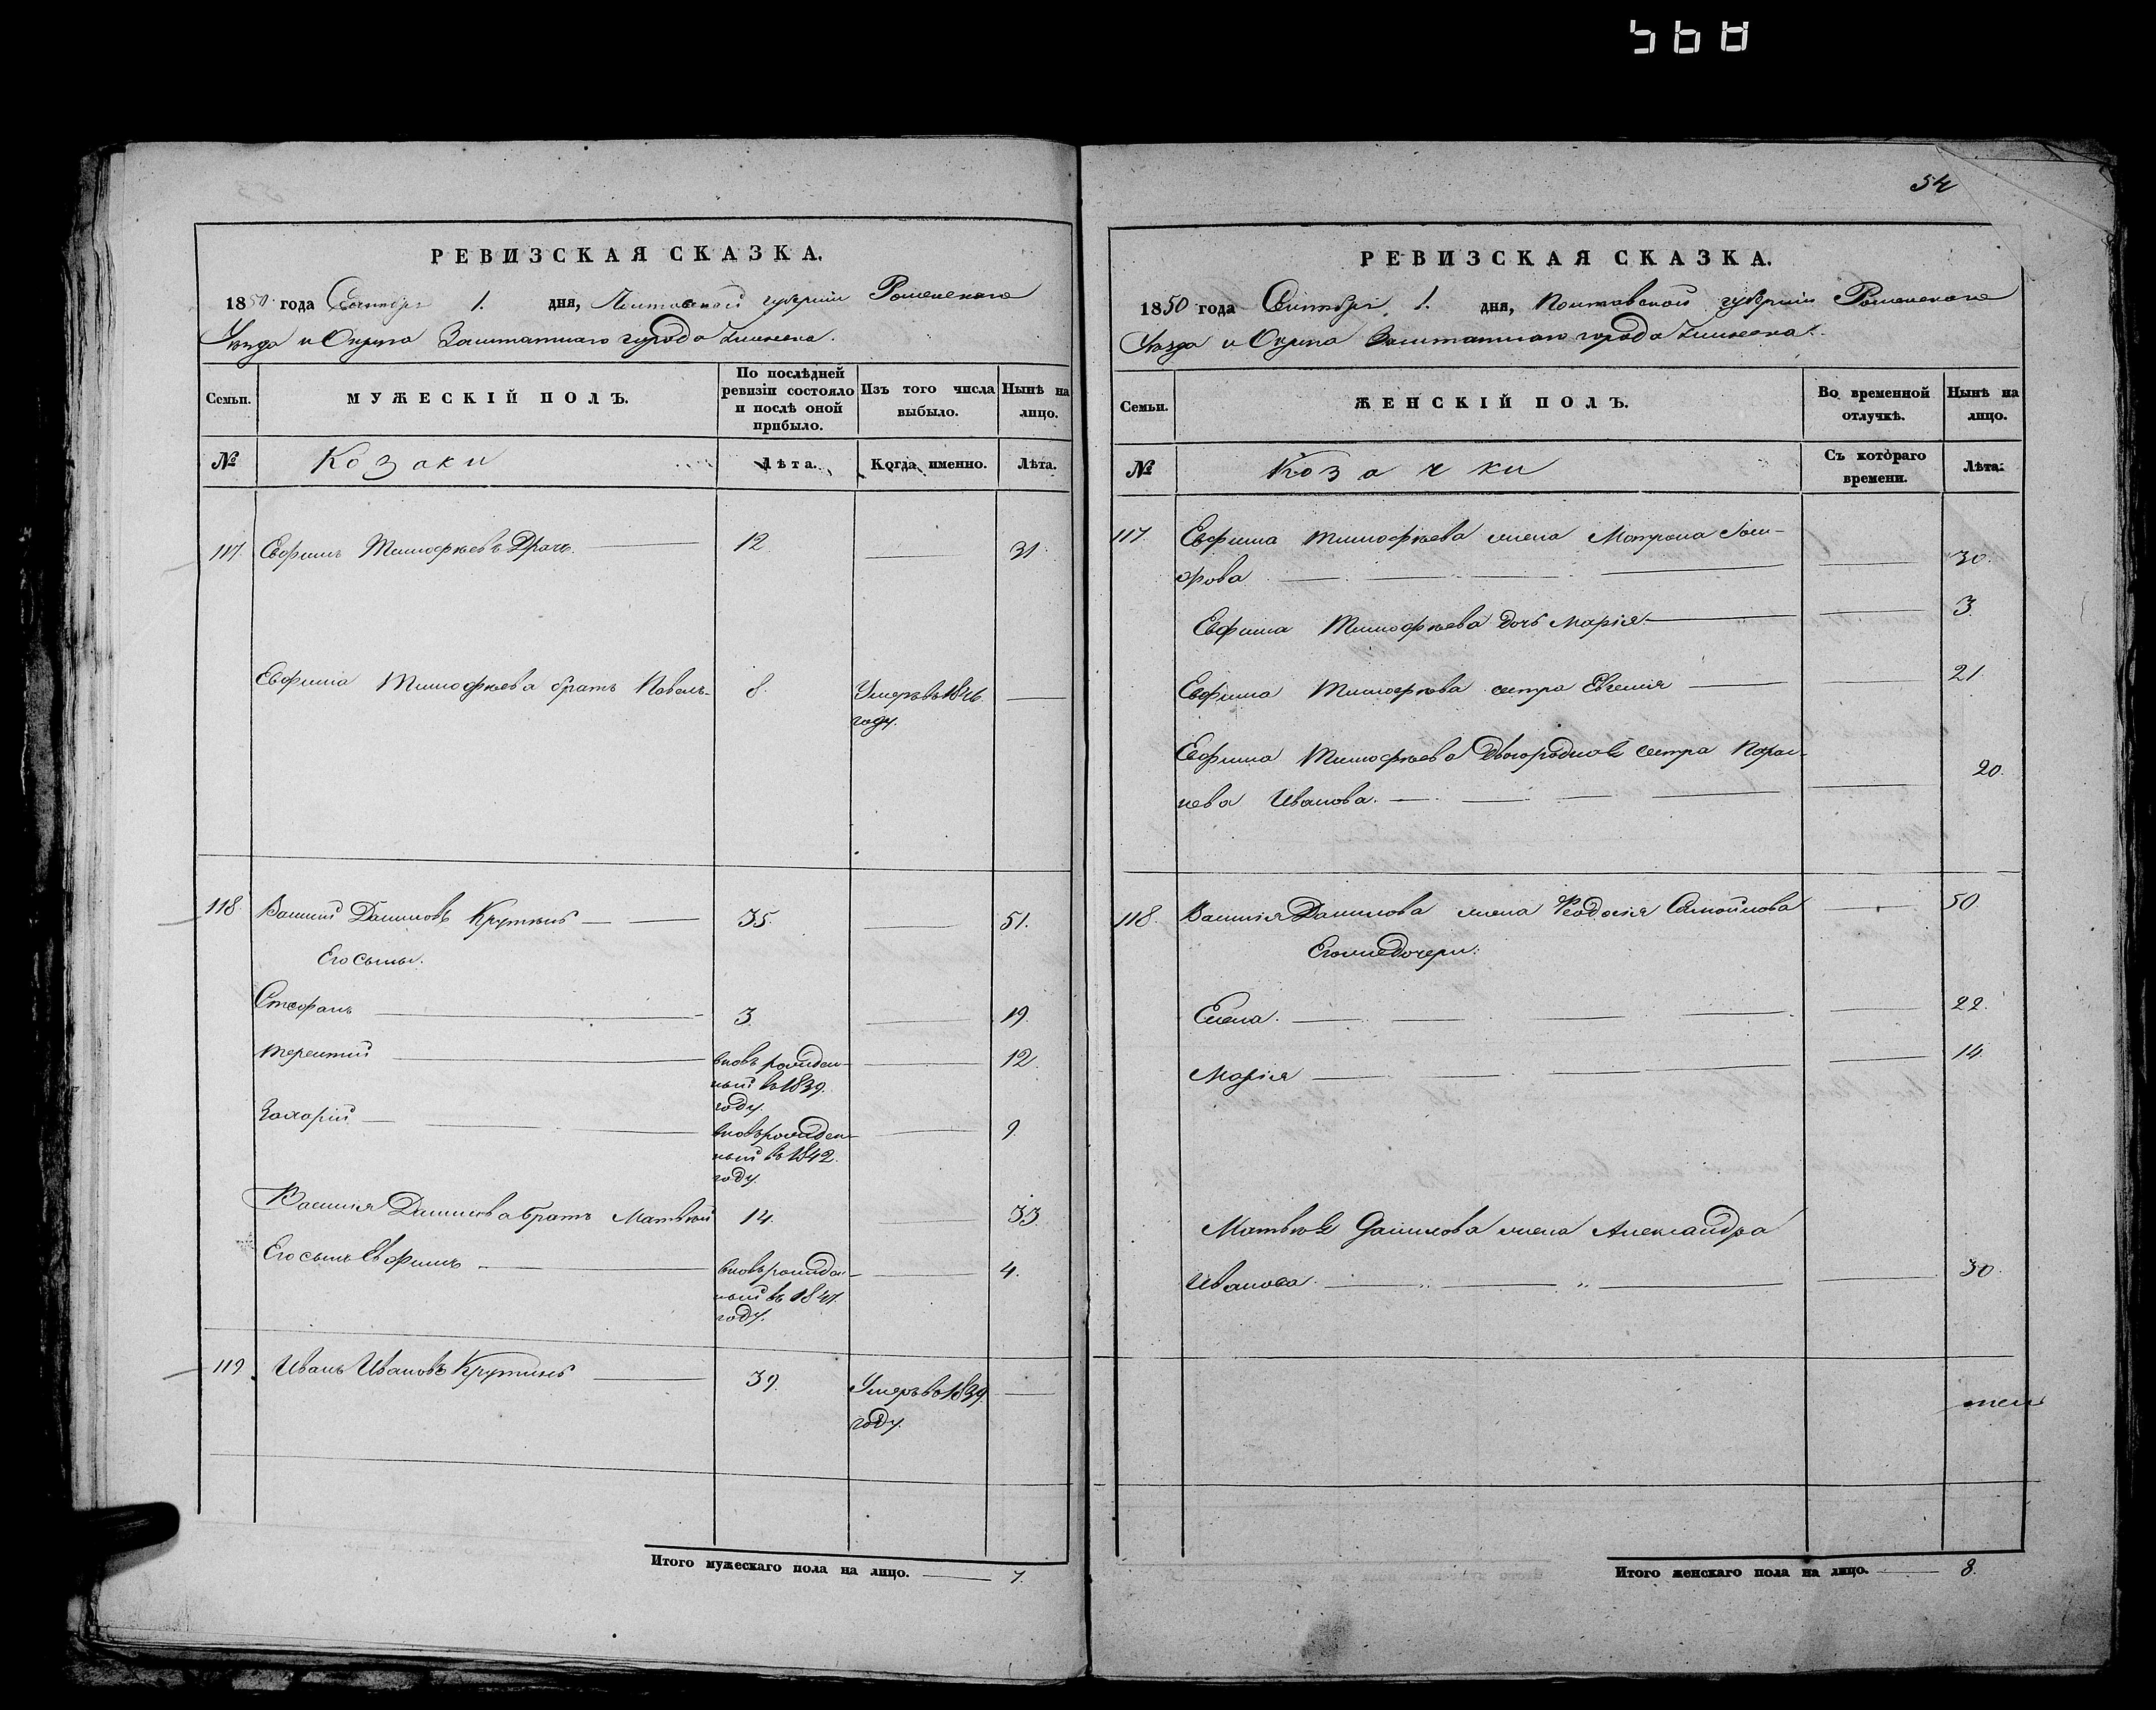 54
РЕВИЗСКАЯ СКАЗКА.
1850 года Сентября 1. дня, Полтавской губерніи Роменскаго
Уезда и Округа Заштатнаго города Глинска.
Семьи. МУЖЕСКІЙ ПОЛЪ. По послѣдней ревизіи состояло и послѣ оной прибыло. Изъ того числа выбыло. Нынѣ на лицо.
№ Козаки Лѣта. Когда именно. Лѣта.
117. Евфимъ Тимофѣевъ Драчь. 12 31.
Евфима Тимофѣева братъ Павелъ 8. Умеръ въ 1846
году.
118 Василій Даниловъ Крутько 35. 51.
Его сыны.
Стефанъ 3. 19.
Терентій вновь рожден- 12.
ный въ 1839.
году.
Захарій вновь рожден- 9.
ный въ 1842.
году.
Василія Данилова братъ Матвѣй 14. 33.
Его сынъ Евфимъ вновь рожден- 4.
ный въ 1847.
году.
119. Иванъ Ивановъ 39. Умеръ въ 1839.
году.
Итого мужескаго пола на лицо. 7.
РЕВИЗСКАЯ СКАЗКА.
1850 года Сентября 1. дня, Полтавской губерніи Роменскаго
Уезда и Округа Заштатнаго города Глинска.
Семьи. ЖЕНСКІЙ ПОЛЪ. Во временной отлучкѣ. Нынѣ на лицо.
№ Козачки Съ котораго времени. Лѣта.
117. Евфима Тимофѣева жена Матрона
30.
Евфима Тимофѣева дочь Марія. 3.
Евфима Тимофѣева сестра Евгенія 21
Евфима Тимофѣева двоюродная сестра Парас-
кева Иванова. 20.
118. Василія Данилова жена Феодосія Самойлова 50.
Его же дочери:
Елена. 22.
Марія 14.
Матвѣя Данилова жена Александра
Иванова. 30.
Итого женскаго пола на лицо. 8.